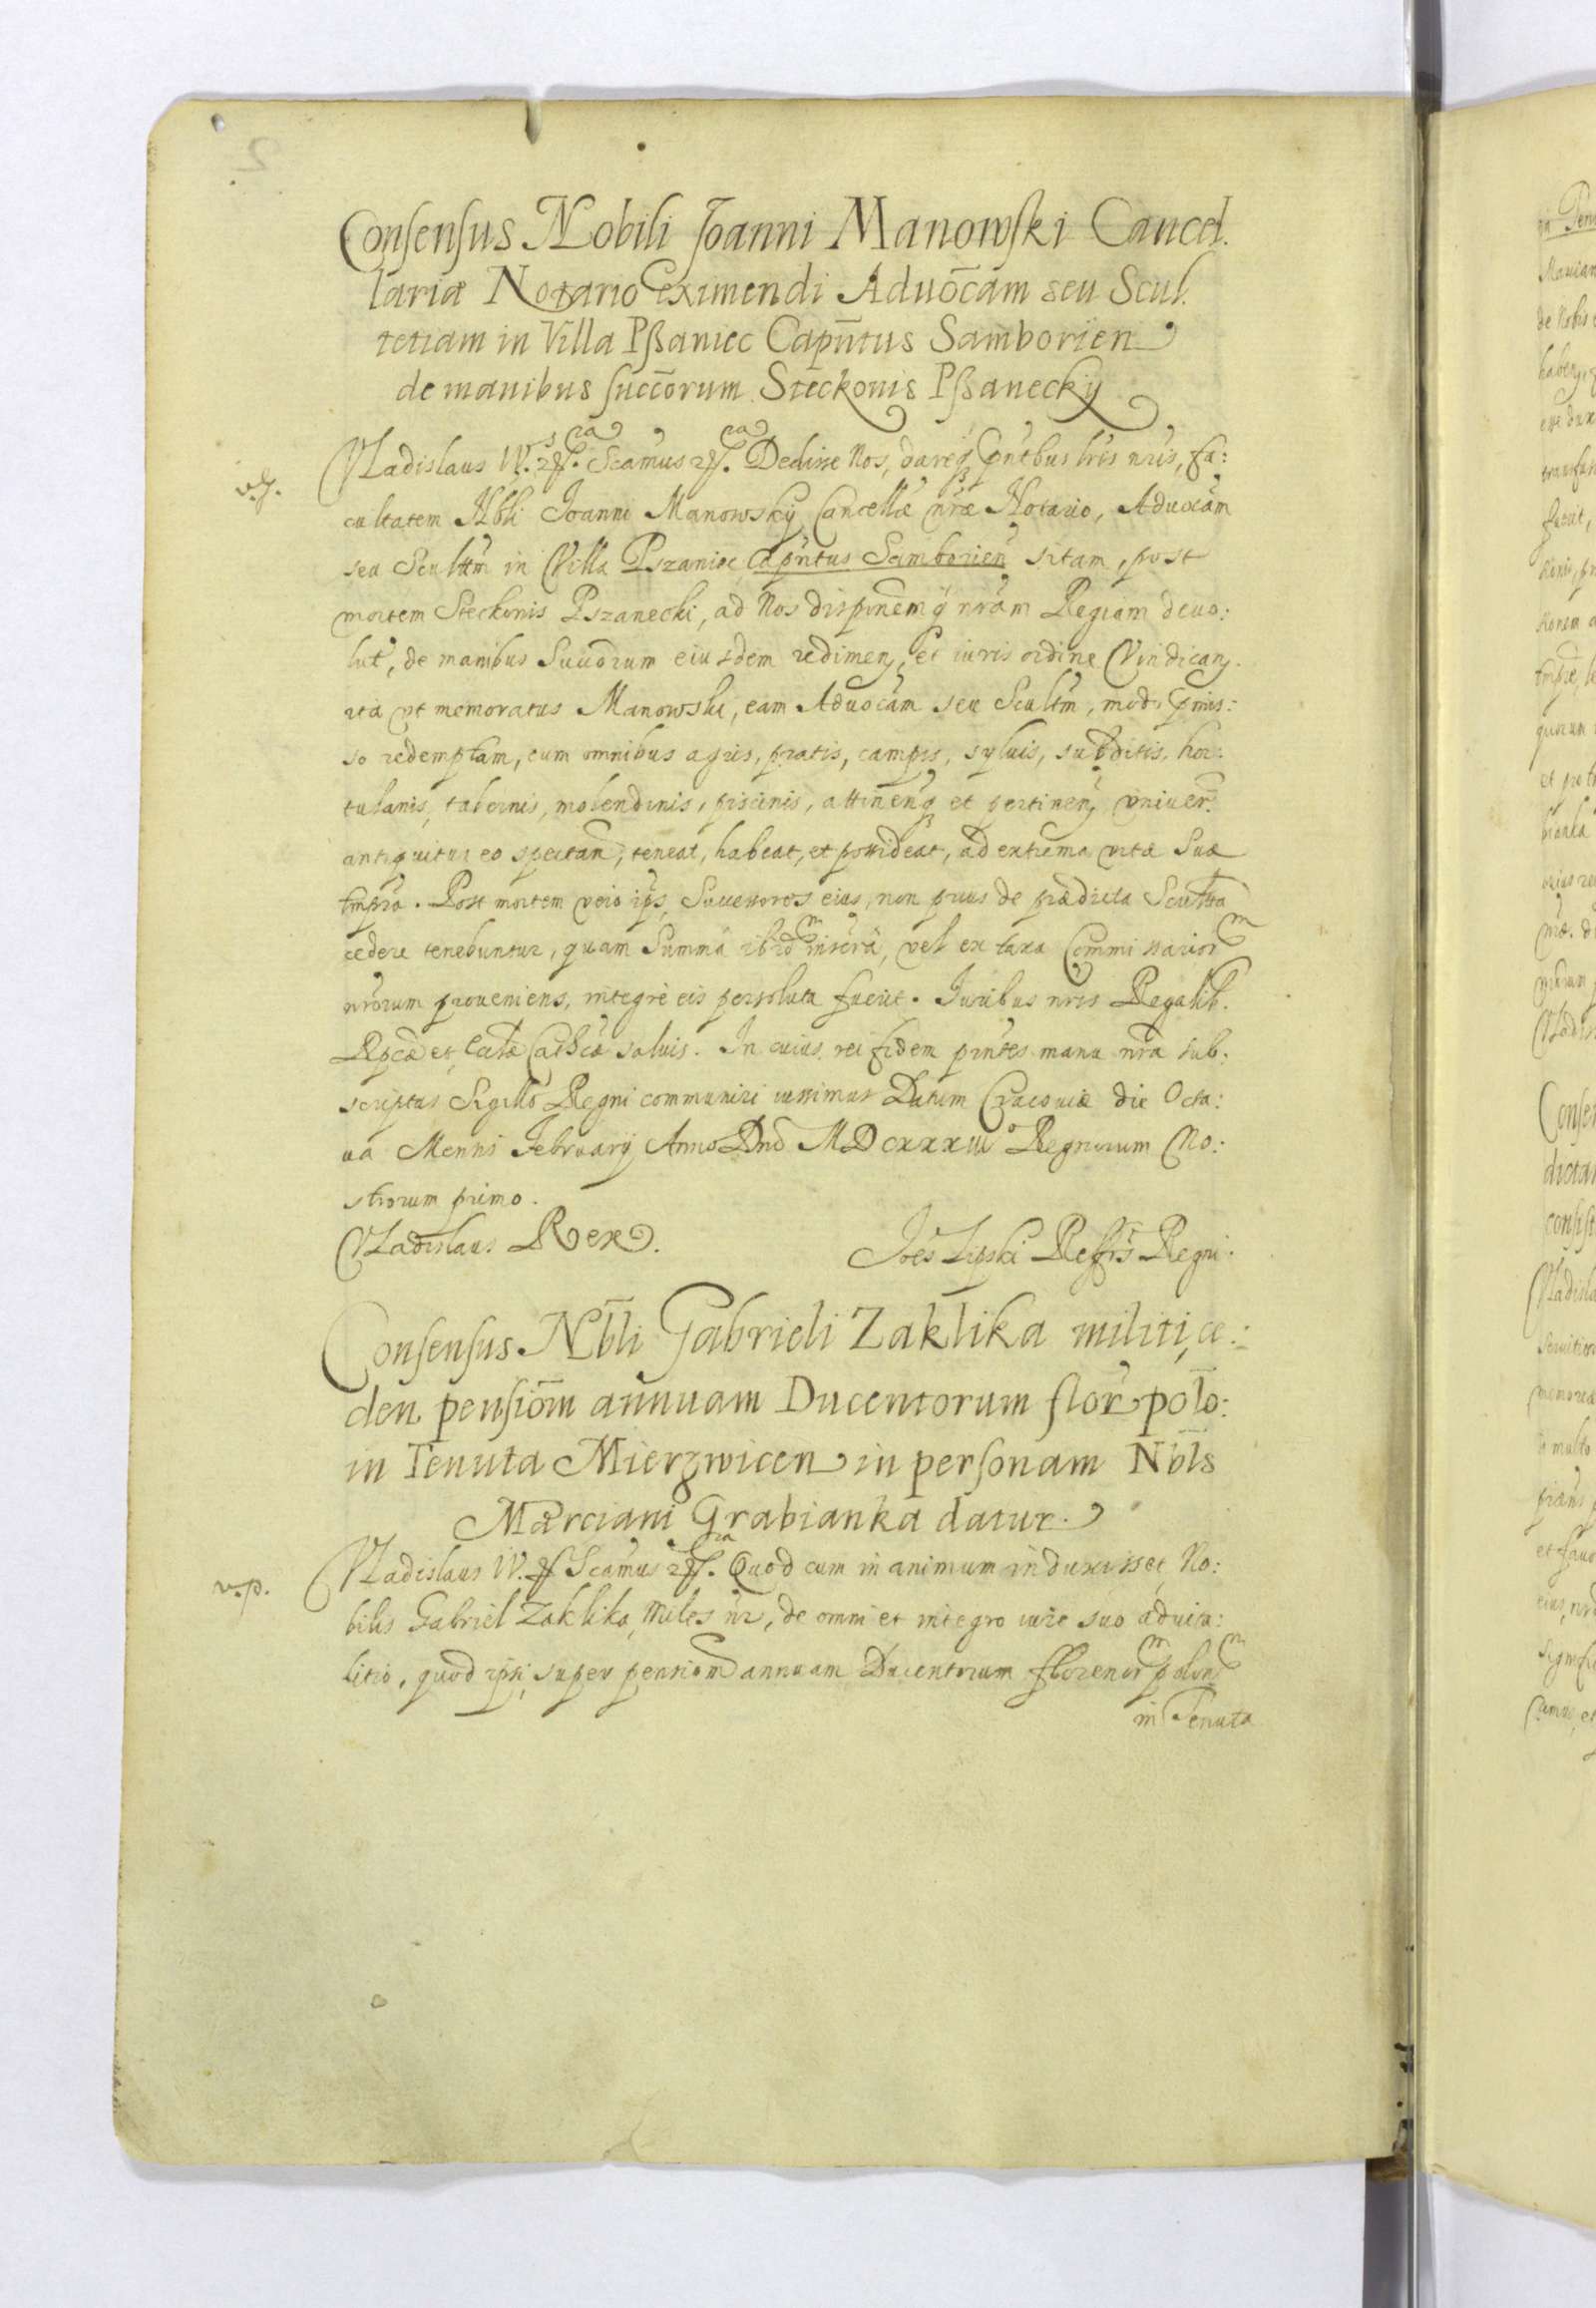 Consensus Nobili Joanni Manowski Cancel.
lariæ Notario eximendi Aduōcam seu Scul.
tetiam in Villa Pßaniec Capn̄tus Samborien
de manibus succōrum Steckonis Pßanecky
Vladislaus IV. Scamus Dedisse Nos, dareq pn̄tbus lris nris, fa:
cultatem Nbli Joanni Manowsky Cancellæ nræ Notario, Aduocam
seu Scultm in Villa Pszaniec Capn̄tus Samborien sitam, post
mortem Steckonis Pszanecki, ad Nos dispōnemq nram Regiam deuo:
lut, de manibus Succorum eiusdem redimen, et iuris ordine Vindican.
ita vt memoratus Manowski, eam Aduocam seu Scultm, modo pmis:
so redemptam, cum omnibus agris, pratis, campis, syluis, subditis, hor:
tulanis, tabernis, molendinis, piscinis, attinenq et pertinen vniuer.
antiquitus eo spectan, teneat, habeat, et possideat, ad extrema vitæ suæ
tmpra. Post mortem vero ips, Successores eius, non prius de prædicta Scultta
cedere tenebuntur, quam Summa ibid inserta, vel ex taxa Commissarior
nrorum proueniens, integrè eis persoluta fuerit. Iuribus nris Regalib.
Rpcæ et Ecclæ Cathcæ saluis. In cuius rei fidem pn̄tes manu nra sub:
scriptas Sigillo Regni communiri iussimus Datum Cracouiæ die Octa:
ua Mensis February Anno Dnī MDCXXXIII Regnorum No:
strorum primo.
Vladislaus Rex.
Joēs Lipski Refris Regni.
Consensus Nbli Gabrieli Zaklika militi, ce:
den pensiōm annuam Ducentorum flor polo:
in Tenuta Mierzwicen in personam Nbls
Marciani Grabianka datur.
v.p.
Vladislaus IV. Scamus Quod cum in animum induxisset No:
bilis Gabriel Zaklika, Miles nr, de omni et integro iure suo aduita:
litio, quod ipsi super pensiom annuam Ducentorum florenor polon
in Tenuta